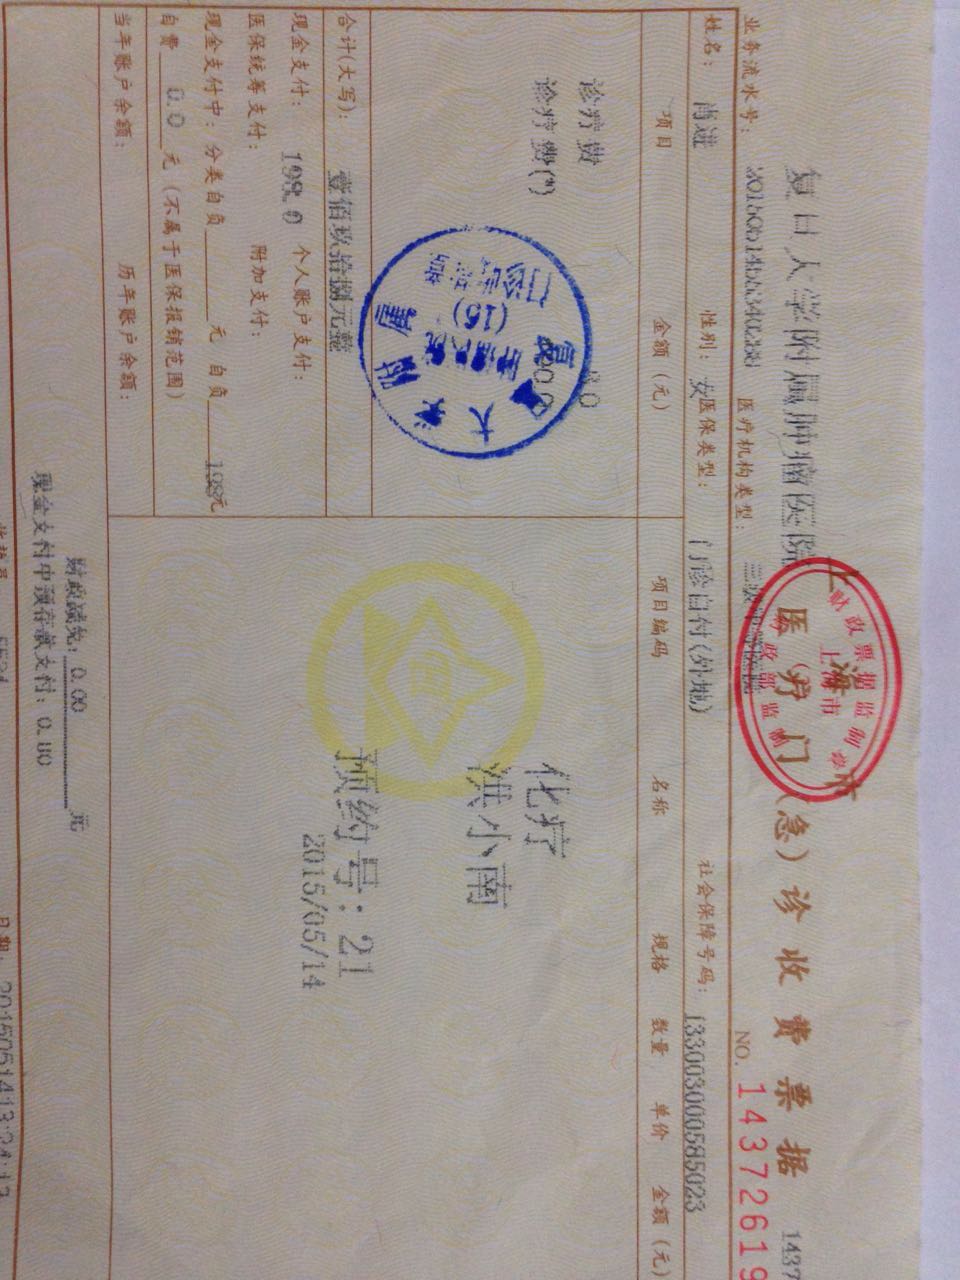 上海市医疗门（急）诊收费票据
1437
复旦大学附属肿瘤医院
NO. 14372619
业务流水号：
医疗机构类型：
姓名：
性别：女
医保类型：门诊自付(外地)
社会保障号码：133003000585023
项目 金额（元） 项目编码 名称 规格 数量 单价 金额（元）
诊疗费
诊疗费(*)
化疗
洪小南
预约号：21
2015/05/14
合计(大写)：壹佰玖拾捌元整
现金支付：198.0 个人账户支付：
医保统筹支付： 附加支付：
现金支付中：分类自负 元 自负 198元
自费 0.0 元（不属于医保报销范围）
当年账户余额： 历年账户余额：
财政减免：0.00 元
现金支付中预存款支付：0.00
日期：20150514